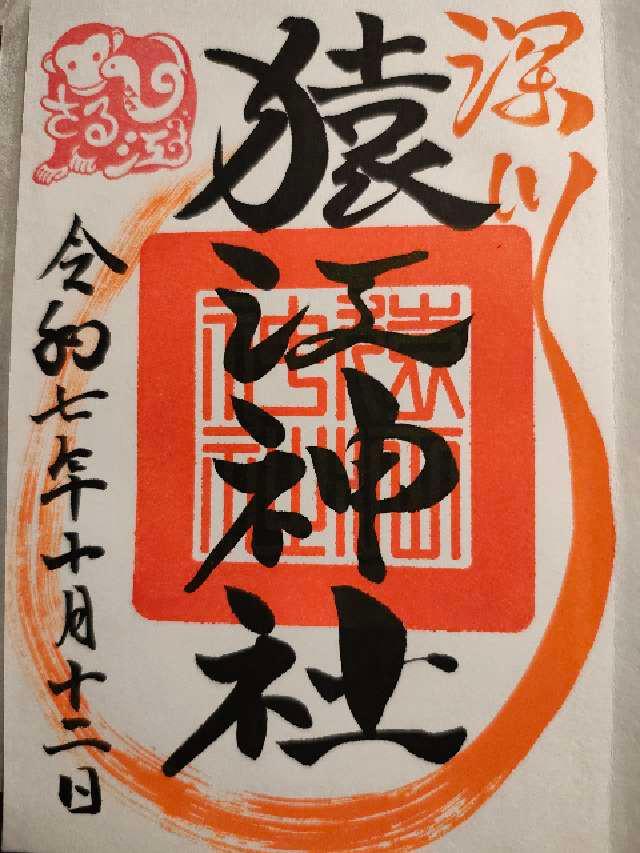 深川
猿江神社
猿江
神社
令和七年十月十二日
さる江